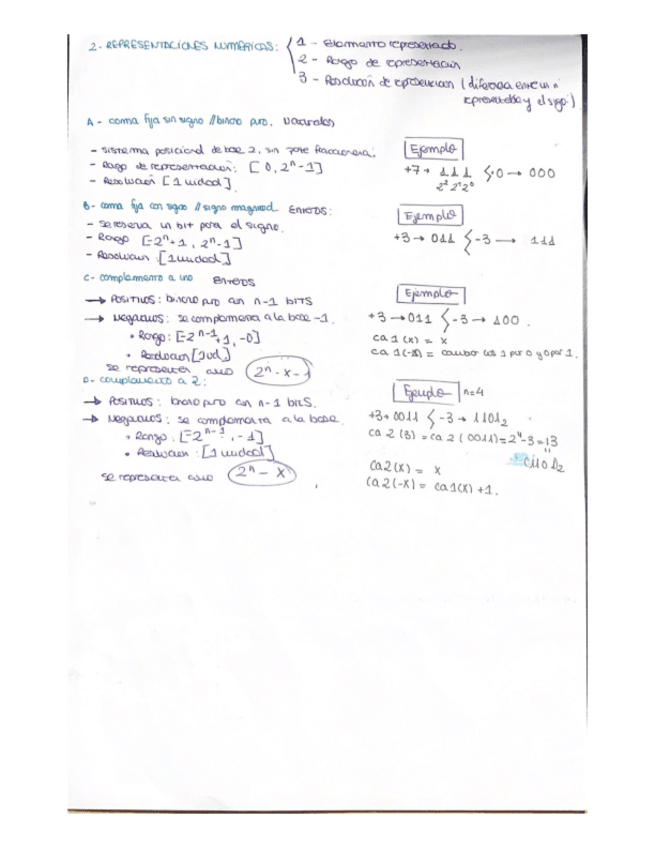 2- REPRESENTACIONES NUMÉRICAS: { 1 - Elemento representado.
2 - Rango de representación
3 - Resolución de representación (diferencia entre un nº
representable y el sigo.)
A - coma fija sin signo // binario puro. Naturales
- Sistema posicional de base 2, sin parte fraccionaria.
- Rango de representación: [0, 2ⁿ-1]
- Resolución [1 unidad].
Ejemplo
+7 → 1 1 1 { 0 → 000
2² 2¹ 2⁰
B- coma fija con signo // signo magnitud ENTEROS:
- Se reserva un bit para el signo.
- Rango [-2ⁿ+1, 2ⁿ-1]
- Resolución: [1 unidad]
Ejemplo
+3 → 011 { -3 → 111
C- complemento a uno ENTEROS
→ POSITIVOS: binario puro con n-1 bits
→ Negativos: se complementa a la base -1.
• Rango: [-2ⁿ⁻¹+1, -0]
• Resolución [1ud]
se representa como 2ⁿ-x-1
Ejemplo
+3 → 011 { -3 → 100.
ca1(x) = x
ca1(-x) = cambiar los 1 por 0 y 0 por 1.
D- complemento a 2:
→ POSITIVOS: binario puro con n-1 bits.
→ Negativos: se complementa a la base.
• Rango: [-2ⁿ⁻¹, -1]
• Resolución: [1 unidad]
se representa como 2ⁿ - x
Ejemplo n=4
+3 → 0011 { -3 → 1101₂
ca2(3) = ca2(0011) = 2⁴-3 = 13
1101₂
ca2(x) = x
ca2(-x) = ca1(x) +1.